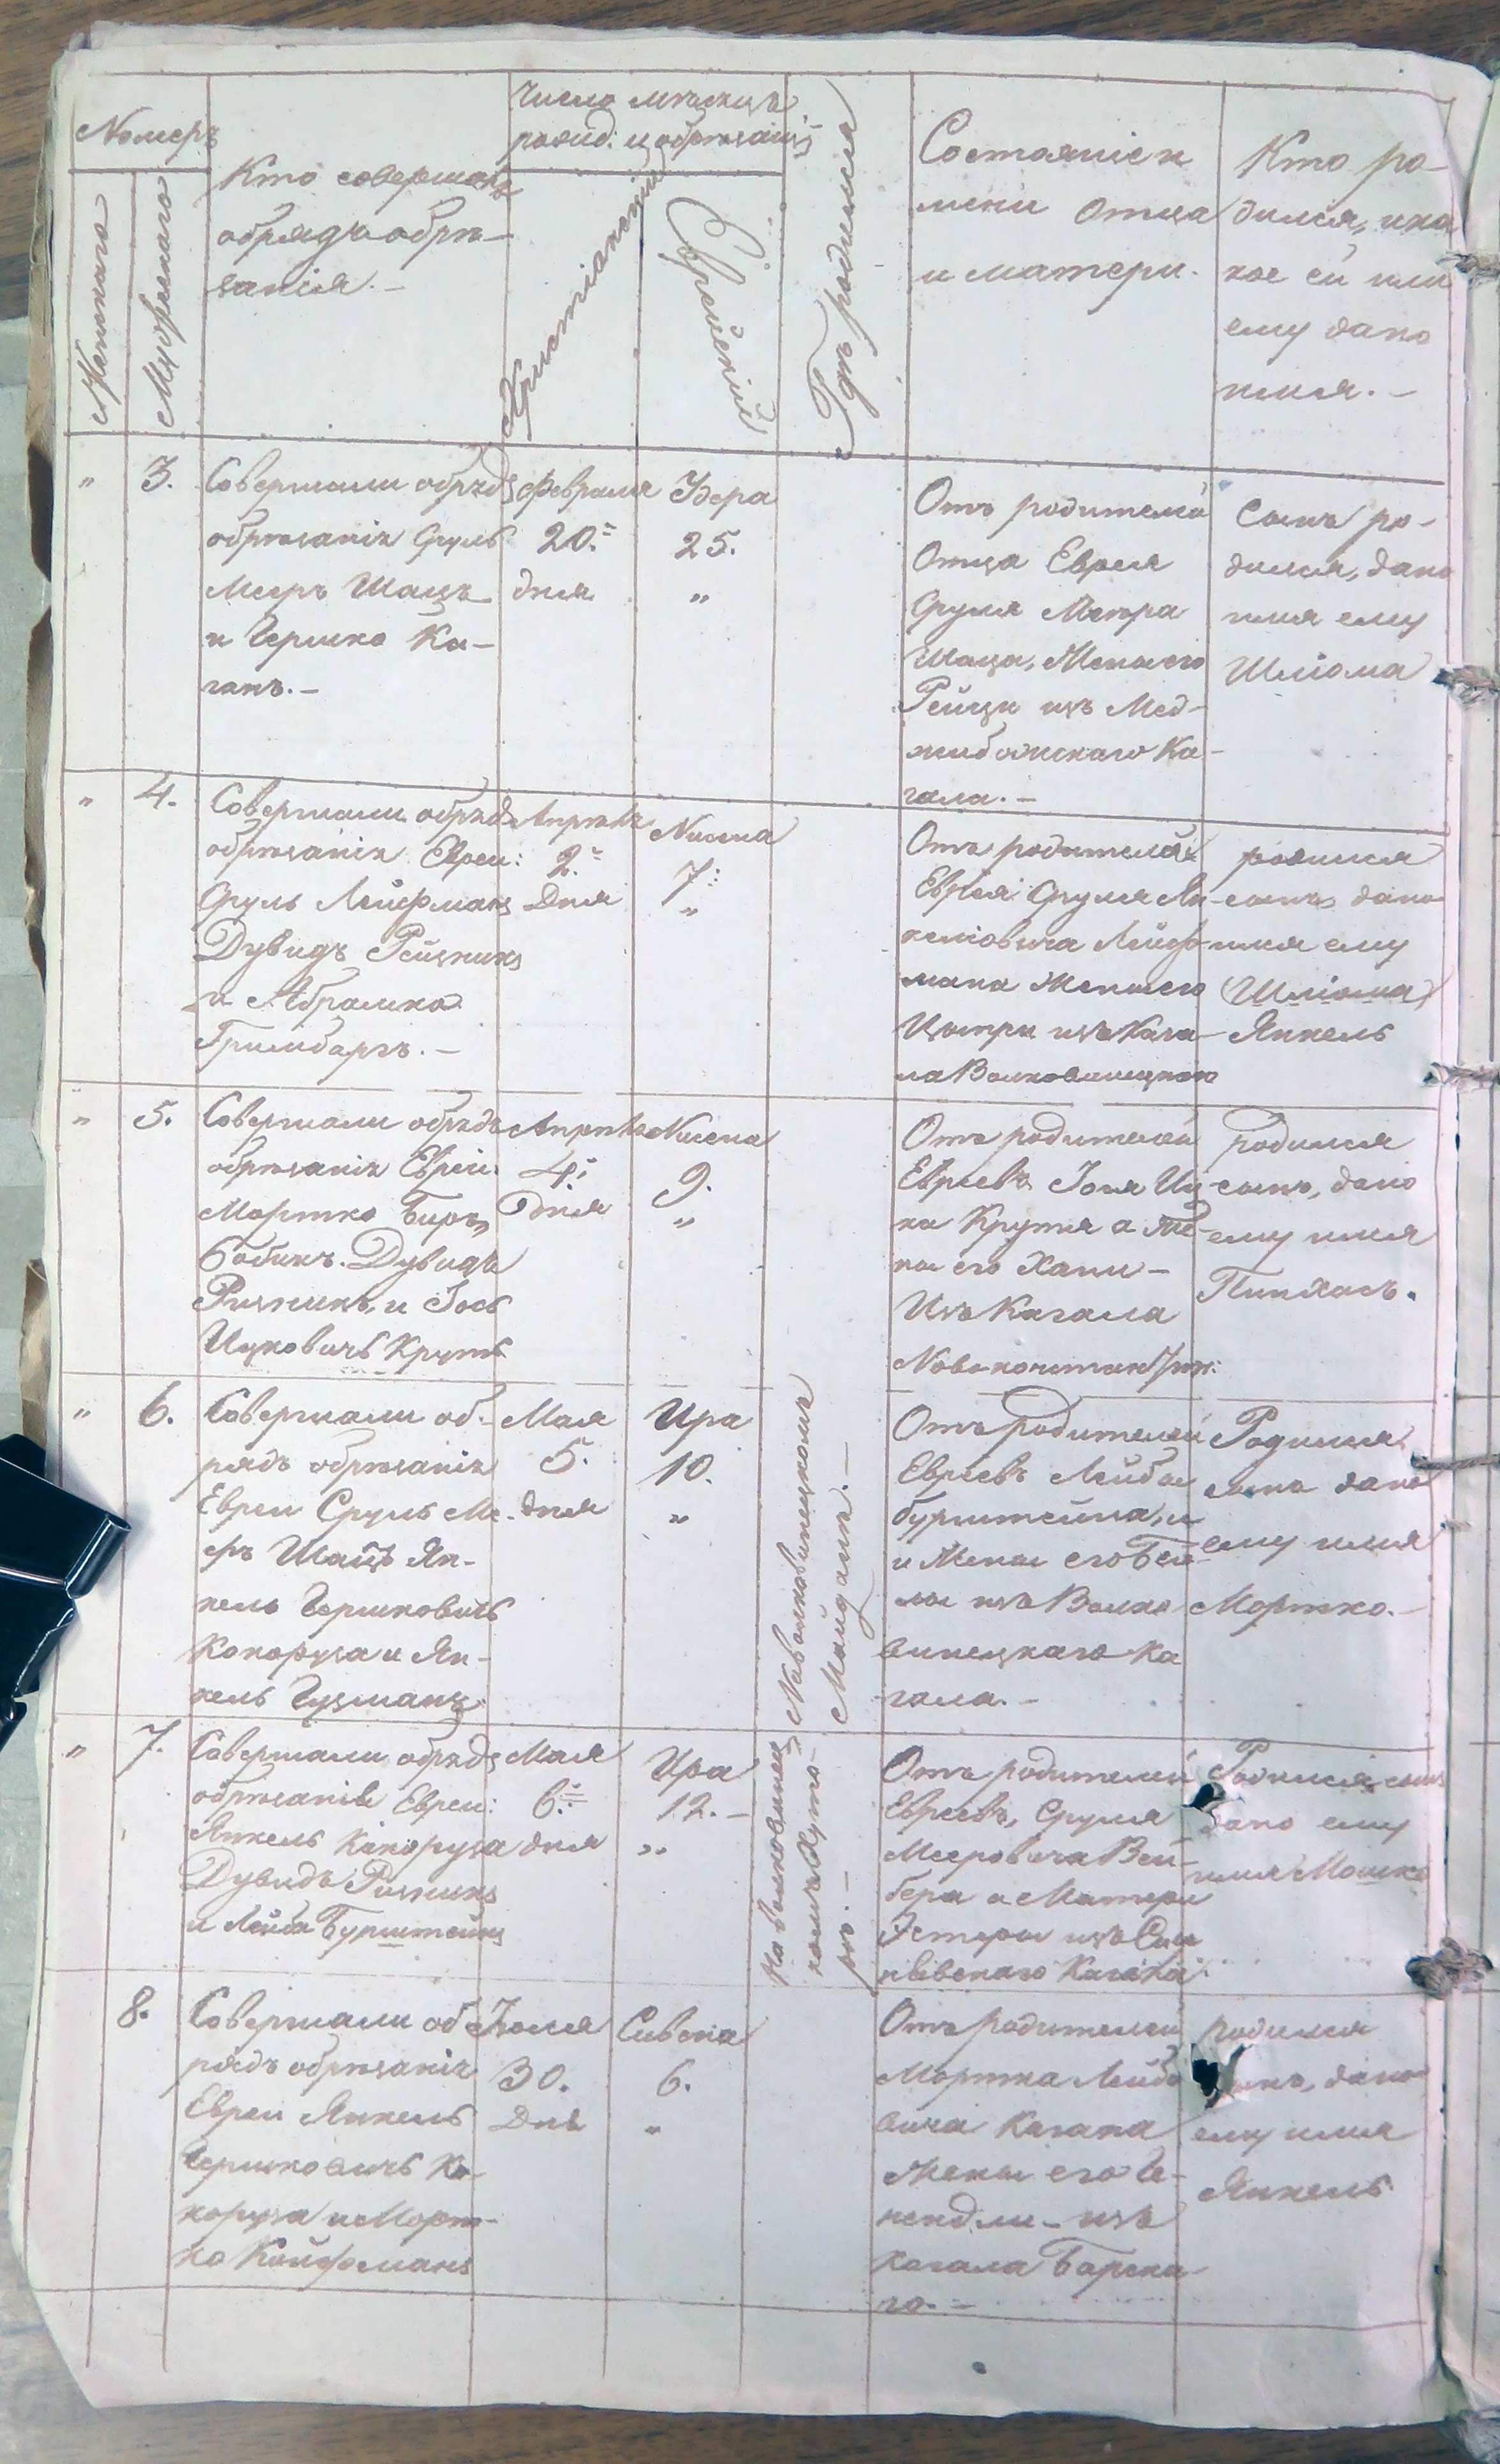 Номеръ
Женскаго
Мужескаго
Кто совершалъ
обрядъ обрѣ-
занія.-
Число мѣсяцъ
рожд: и обрѣзанія
Христіанскій
Еврейскій
Гдѣ родился
Состояніе и
имени Отца
и матери.
Кто ро-
дился, и ка
кое ей или
ему дано
имя.-
" 3.
Совершали обрядъ
обрѣзанія Сруль
Мееръ Шацъ
и Гершко Ка-
ганъ.-
Февраля
20.
дня
25.
"
Отъ родителей
Отца Еврея
Сруля Меера
Шаца, Жены его
Рейзи изъ Мед-
жибожскаго Ка-
гала.-
Сынъ ро-
дился, дано
имя ему
Шліома
" 4.
Совершали обрядъ
обрѣзанія Евреи:
Сруль Лейфманъ
Дувидъ Резникъ
и Абрамко
Гримбаргъ.-
Апрѣля
2.
Дня
Нисона
7.
"
Отъ родителей
Еврея: Сруля Ян
келіовича Лейф-
мана Жены его
изъ Кага-
ла Волковинецкой
родился
сынъ дано
имя ему
Шліома
Янкель
" 5.
Совершали обрядъ
обрѣзанія Евреи.
Мортко Биръ,
Дувидъ
Ризникъ, и Іось
Ицковичъ Крутъ
Апрѣля
4.
Дня
Нисена
9.
"
Отъ родителей
Евреевъ Іося Иц
ка Крутя а Же-
ны его Хани-
Изъ Кагала
родился
сынъ, дано
ему имя
Пинхасъ.
" 6.
Совершали об-
рядъ обрѣзанія
Евреи Сруль Ме-
еръ Шацъ Ян-
кель Гершковичъ
Кокоруза и Ян-
кель Гузманъ
Мая
5.
дня
Ира
10.
"
На волковинецкомъ
Майдани.-
Отъ родителей
Евреевъ Лейбы
бурштейна, и
и Жены его Бей
лы изъ Волко
винецкаго Ка
гала.-
Родился
сынъ дано
ему имя
Мортко.-
" 7.
Совершали обрядъ
обрѣзанія Евреи:
Янкель Кокоруза
Дувидъ Ризникъ
и Лейба Бурштейнъ
Мая
6.
дня
Ира
12.-
"
На волковинец
комъ Хуто-
рѣ.-
Отъ родителей
Евреевъ, Сруля
Мееровича Вей-
бера а Матери
Эстеры изъ
Кагала
Родился сынъ
дано ему
имя Мошко
8.
Совершали об
рядъ обрѣзанія
Евреи Янкель
Гершковичъ Ко-
коруза и Морт-
ко Койфманъ
30.
Дня
Сивена
6.
"
Отъ родителей
Мортка Лейбо
вича Кагана
Жены его Ге-
нендли- изъ
кагала Барска-
го.-
родился
дано
ему имя
Янкель